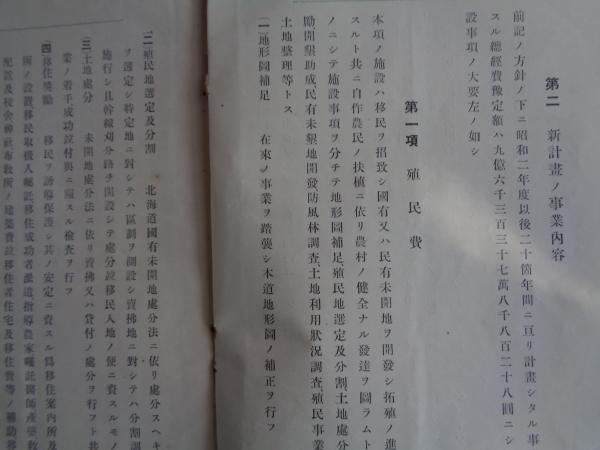 第二　新計畫ノ事業內容
前記ノ方針ノ下ニ昭和二年度以後二十箇年間ニ亘リ計畫シタル事
スル總經費豫定額ハ九億六千三百三十七萬八千八百二十八圓ニシ
設事項ノ大要左ノ如シ
第一項　殖民費
本項ノ施設ハ移民ヲ招致シ國有又ハ民有未開地ヲ開發シ拓殖ノ進
スルト共ニ自作農民ノ扶植ニ依リ農村ノ健全ナル發達ヲ圖ラムト
ノニシテ施設事項ヲ分チテ地形圖補足、殖民地選定及分割、土地處分
勵、開墾助成、民有未墾地開發、防風林調査、土地利用狀況調査、殖民事業
土地整理等トス
(一)地形圖補足　在來ノ事業ヲ踏襲シ本道地形圖ノ補正ヲ行フ
(二)殖民地選定及分割　北海道國有未開地處分法ニ依リ處分スヘキ
ヲ選定シ特定地ニ對シテハ區劃ヲ測設シ賣拂地ニ對シテハ分割調
施行シ且幹線刈分路ヲ開設シテ處分竝移民入地ノ便ニ資スルモノ
(三)土地處分　未開地處分法ニ依リ賣拂又ハ貸付ノ處分ヲ行フト共
業ノ着手成功竝付與ニ關スル檢査ヲ行フ
(四)移住奬勵　移民ヲ誘導保護シ其ノ安定ニ資スル爲移住案內所及
所ノ設置移民取扱人囑託移住成功者派遣、指導農家囑託、醫師產婆救
配置及校舍神社布敎所ノ建築費竝移住者住宅及移住費等ノ補助移